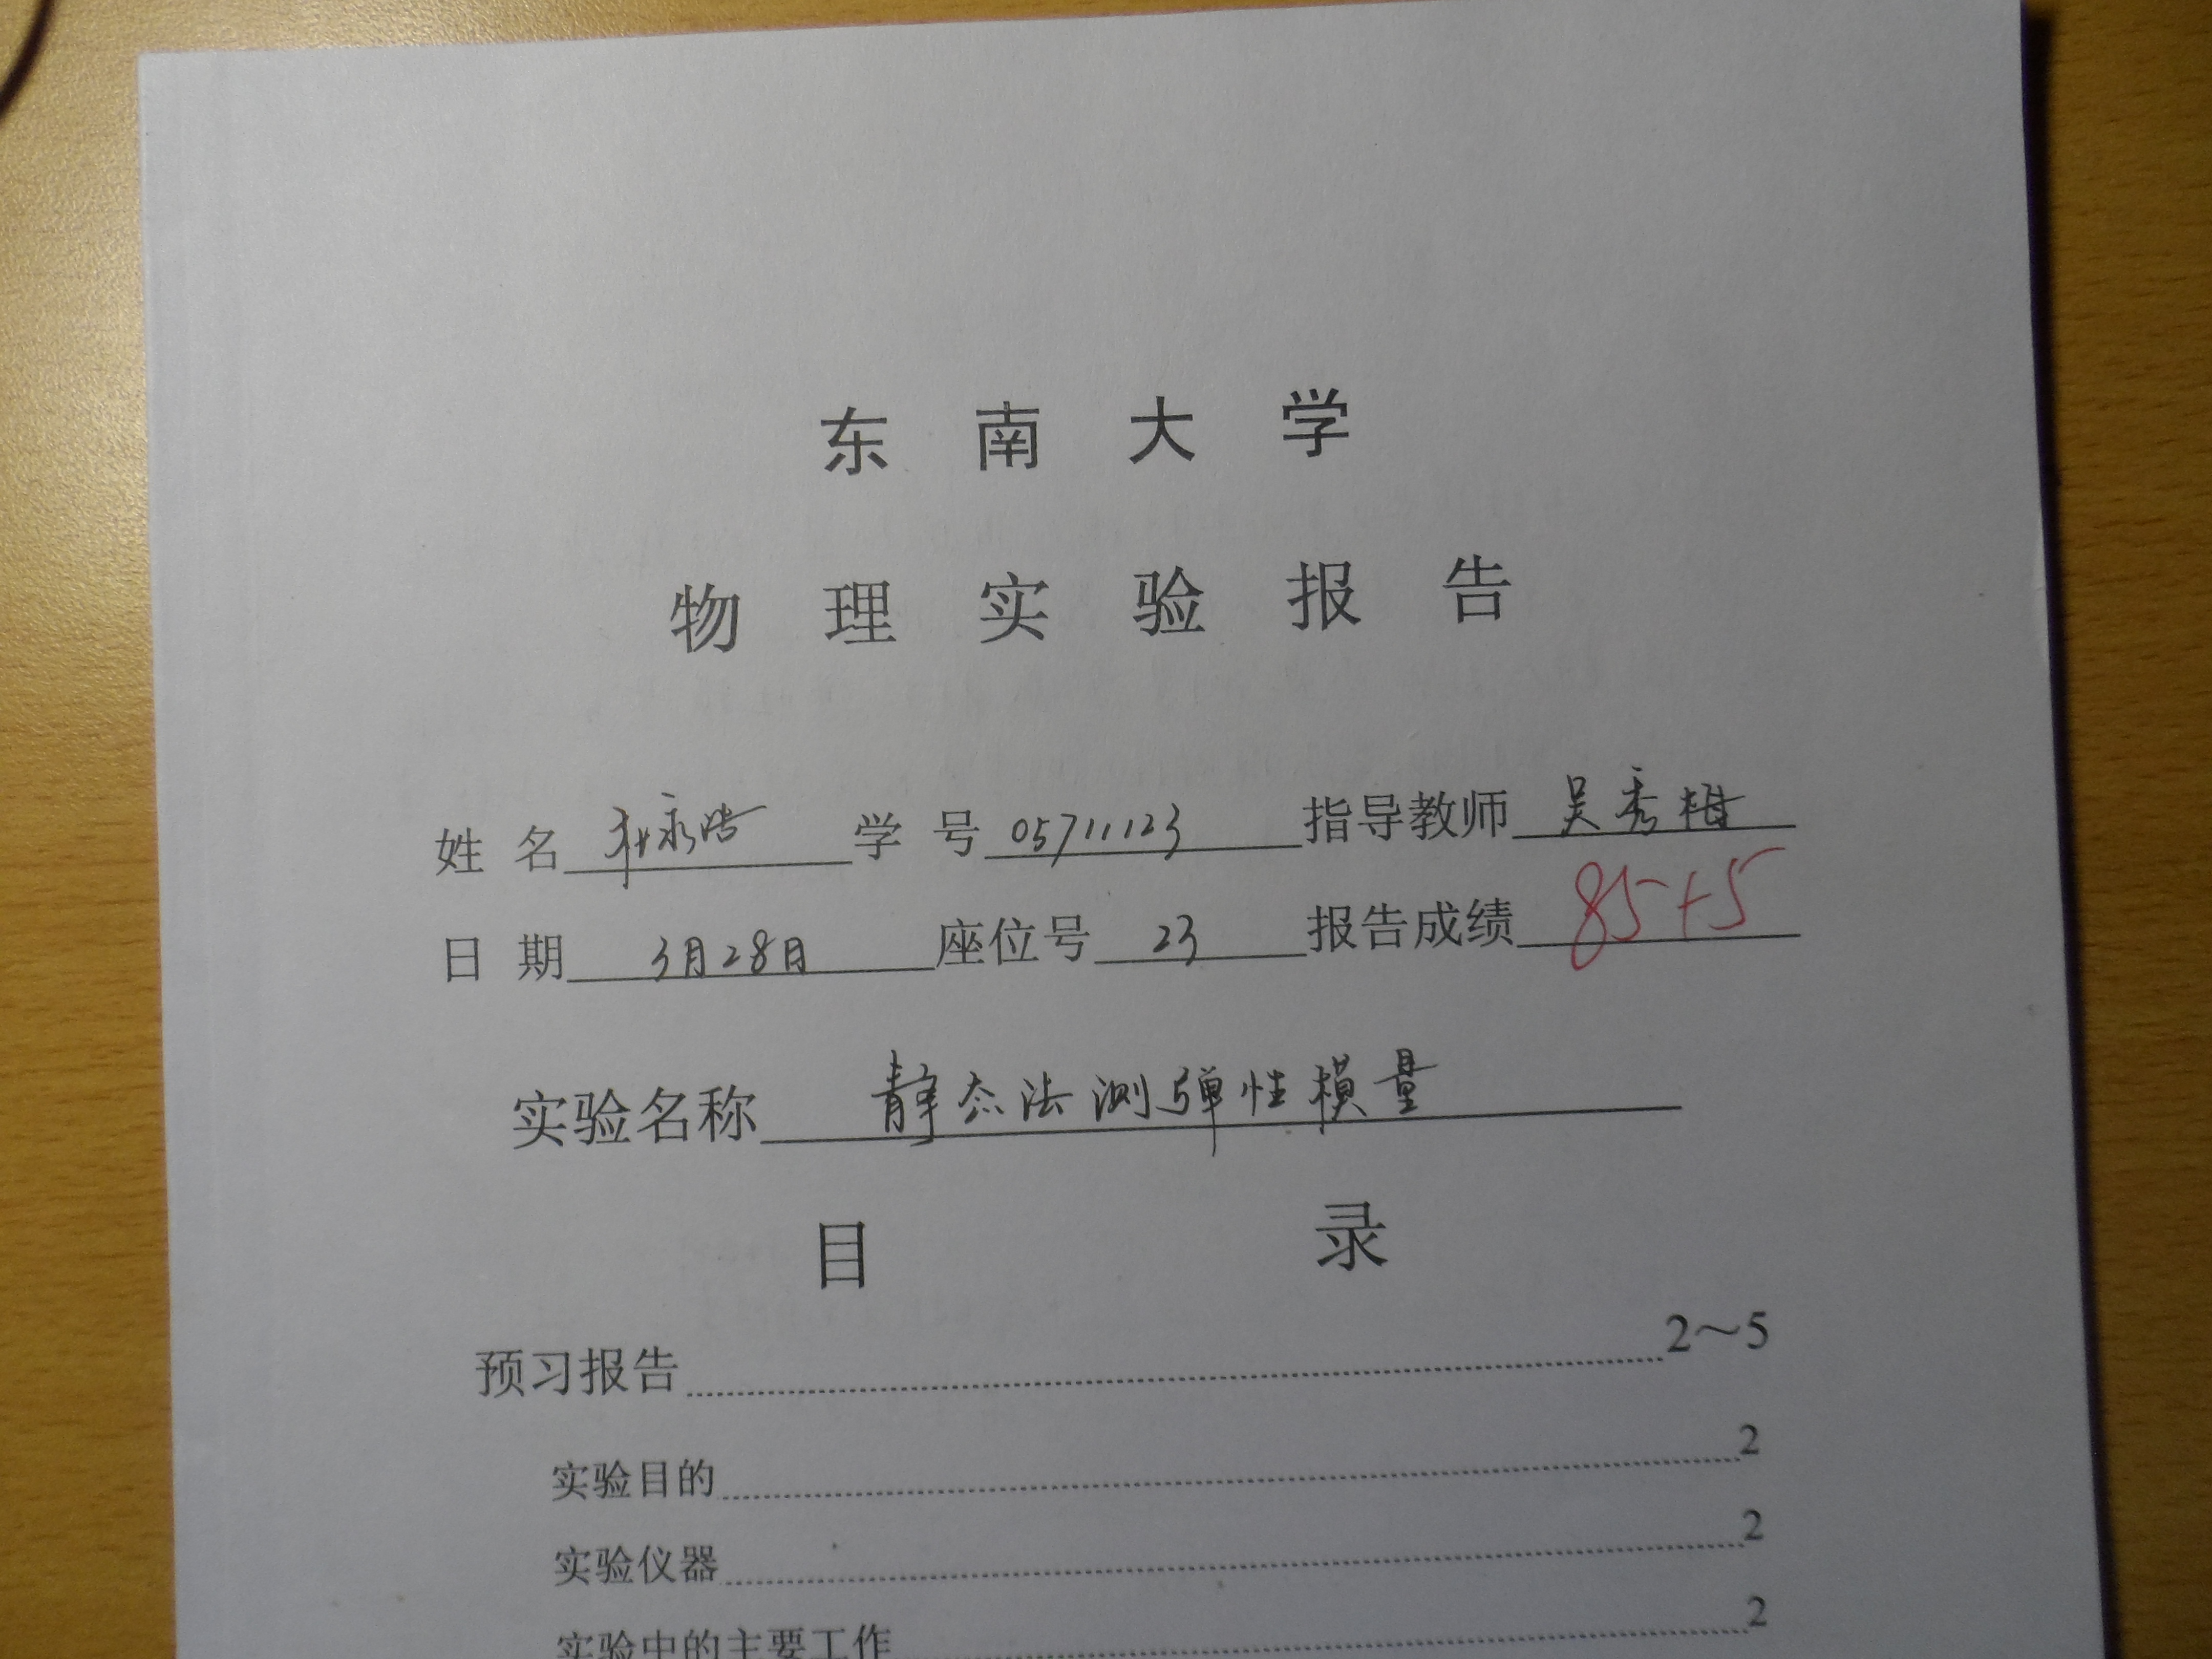 东南大学
物理实验报告
姓名 永浩 学号 05711123 指导教师 吴秀梅
日期 3月28日 座位号 23 报告成绩 85+5
实验名称 静态法测弹性模量
目录
预习报告 2～5
实验目的 2
实验仪器 2
实验中的主要工作 2